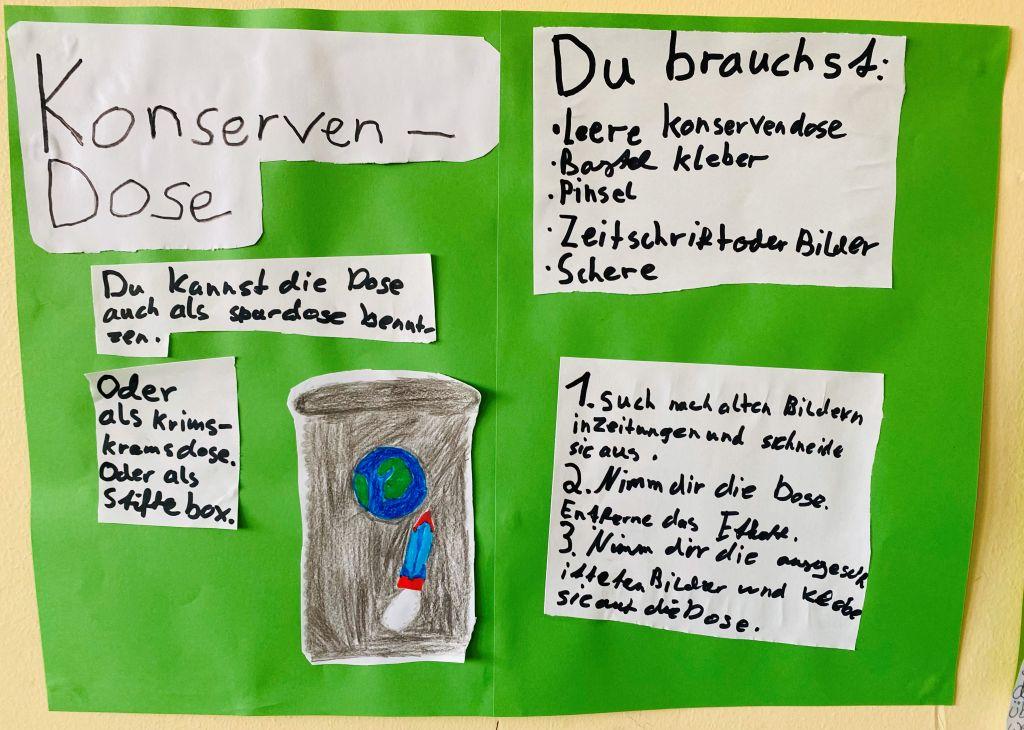 Konserven-
Dose
Du kannst die Dose
auch als spardose benut-
zen.
Oder
als Krims-
kramsdose.
Oder als
Stifte box.
Du brauchst:
·Leere Konservendose
·Bastel kleber
·Pinsel
·Zeitschrift oder Bilder
·Schere
1. Such nach alten Bildern
in Zeitungen und schneide
sie aus.
2. Nimm dir die Dose.
Entferne das
3. Nimm dir die ausgesch
ittenen Bilder und Klebe
sie auf die Dose.